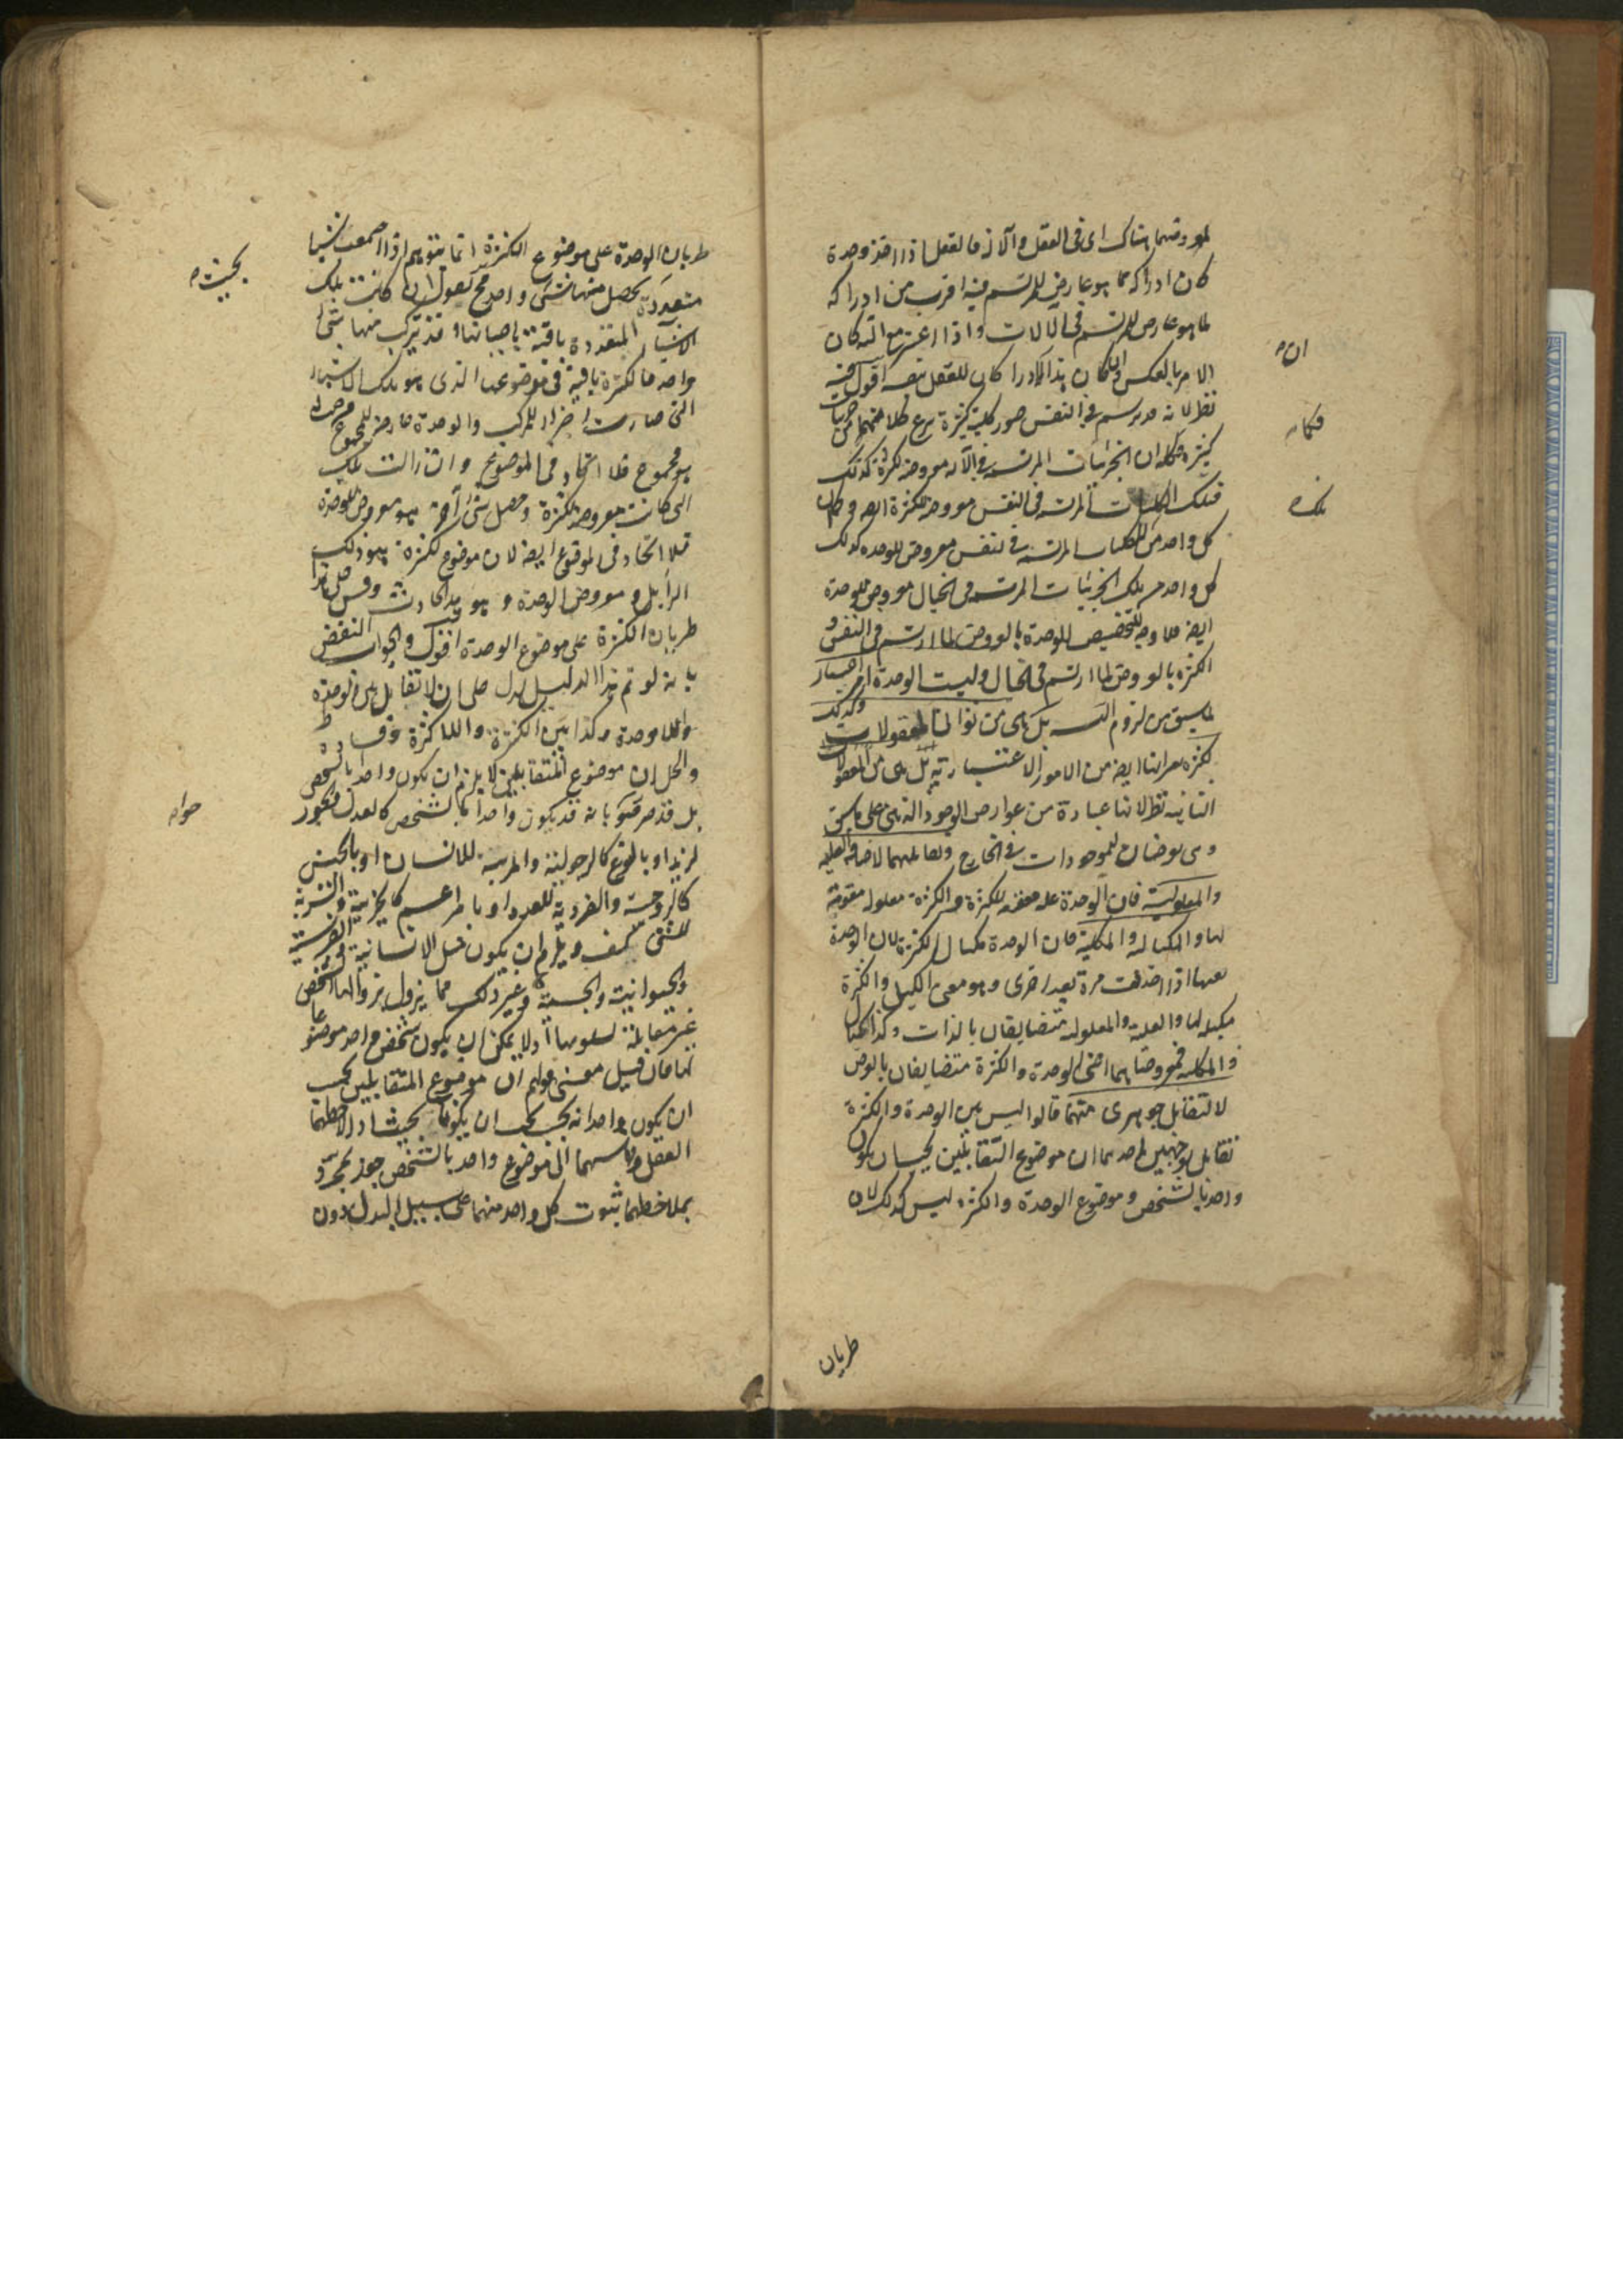 لمعروضهما هناك اى فى العقل والآلة فالعقل اذا اخذ وحده
كان ادراكه لما هو عارض للمرتسم فيه اقرب من ادراكه
لما هو عارض للمرتسم فى الآلات واذا اعتبر مع آلته كان
الامر بالعكس وان كان هذا الادراك للعقل نفسه اقول فيه
نظر لانه قد يرتسم فى النفس صور كلية كثيرة ينتزع كلا منها من جزئيات
كثيرة فكما ان الجزئيات المرتسمة فى الآلة معروضة للكثرة كذلك
تلك الكليات المرتسمة فى النفس معروضة للكثرة ايضا وكما ان
كل واحد من الكليات المرتسمة فى النفس معروض للوحدة كذلك
كل واحد من تلك الجزئيات المرتسمة فى الخيال معروض للوحدة
ايضا فلا وجه لتخصيص الوحدة بالعروض لما ارتسم فى النفس و
الكثرة بالعروض لما ارتسم فى الخيال وليست الوحدة امرا عينيا
لما سبق من لزوم التسلسل بل هى من ثوانى المعقولات وكذلك
الكثرة
من الامور الاعتبارية بل هى من المعقولات
الثانية نظرا لانها عبارة من عوارض الوجود الذهنى على ما سبق
وهى تعرضان للموجودات فى الخارج وتقابلهما لاضافة العلية
والمعلولية فان الوحدة علة مقومة للكثرة والكثرة معلولة متقومة
بها والمكيالية والمكيلية فان الوحدة مكيال للكثرة لان الوحدة
تعدها اذا اخذت مرة بعد اخرى وهو معنى الكيل والكثرة
مكيلة لها والعلة والمعلولة متضايفان بالذات وكذا المكيال
والمكيلة فمعروضاهما اعنى الوحدة والكثرة متضايفان بالعرض
لا لتقابل جوهرى بينهما قالوا ليس بين الوحدة والكثرة
تقابل لوجهين احدهما ان موضوع المتقابلين يجب ان يكون
واحدا بالشخص وموضوع الوحدة والكثرة ليس كذلك لان
طريان
ان
فكما
تلك
طريان الوحدة على موضوع الكثرة انما يتوهم اذا اجتمعت اشياء
متعددة يحصل منها شىء واحد فح نقول ان كانت تلك
الاشياء المتعددة باقية باعيانها وقد تركب منها شىء
واحد فالكثرة باقية فى موضوعها الذى هو تلك الاشياء
التى صارت اجزاء للمركب والوحدة عارضة للمجموع من حيث
هو مجموع فلا اتحاد فى الموضوع وان زالت تلك
التى كانت معروضة للكثرة وحصل شىء آخر هو معروض للوحدة
فلا اتحاد فى الموضوع ايضا لان موضوع الكثرة هو ذلك
الزايل ومعروض الوحدة هو هذا الحادث وقس على هذا
طريان الكثرة على موضوع الوحدة اقول والجواب النقض
بانه لو تم هذا الدليل لدل على ان لا تقابل بين الوحدة
واللاوحدة وكذا بين الكثرة واللاكثرة
والحل ان موضوع المتقابلين لا يلزم ان يكون واحدا بالشخص
بل قد صرحوا بانه قد يكون واحدا بالشخص كالعدل والجور
لزيد او بالنوع كالرجولية والمرئية للانسان او بالجنس
كالزوجية والفردية للعدد او بامر اعم كالخيرية والشرية
للشىء كيف ويلزم ان يكون مثل الانسانية والفرسية
والحيوانية والجسمية وغير ذلك مما يزول بزوالها الشخص
غير مقابلة لسلوبها اذ لا يمكن ان يكون شخص واحد موضوعا
لها فان قيل معنى قولهم ان موضوع المتقابلين يجب
ان يكون واحدا انه يجب ان يكونا بحيث اذا لاحظهما
العقل وقاسهما الى موضوع واحد بالشخص جوز بمجرد
ملاحظتهما ثبوت كل واحد منهما على سبيل البدل دون
بحيث
جواب